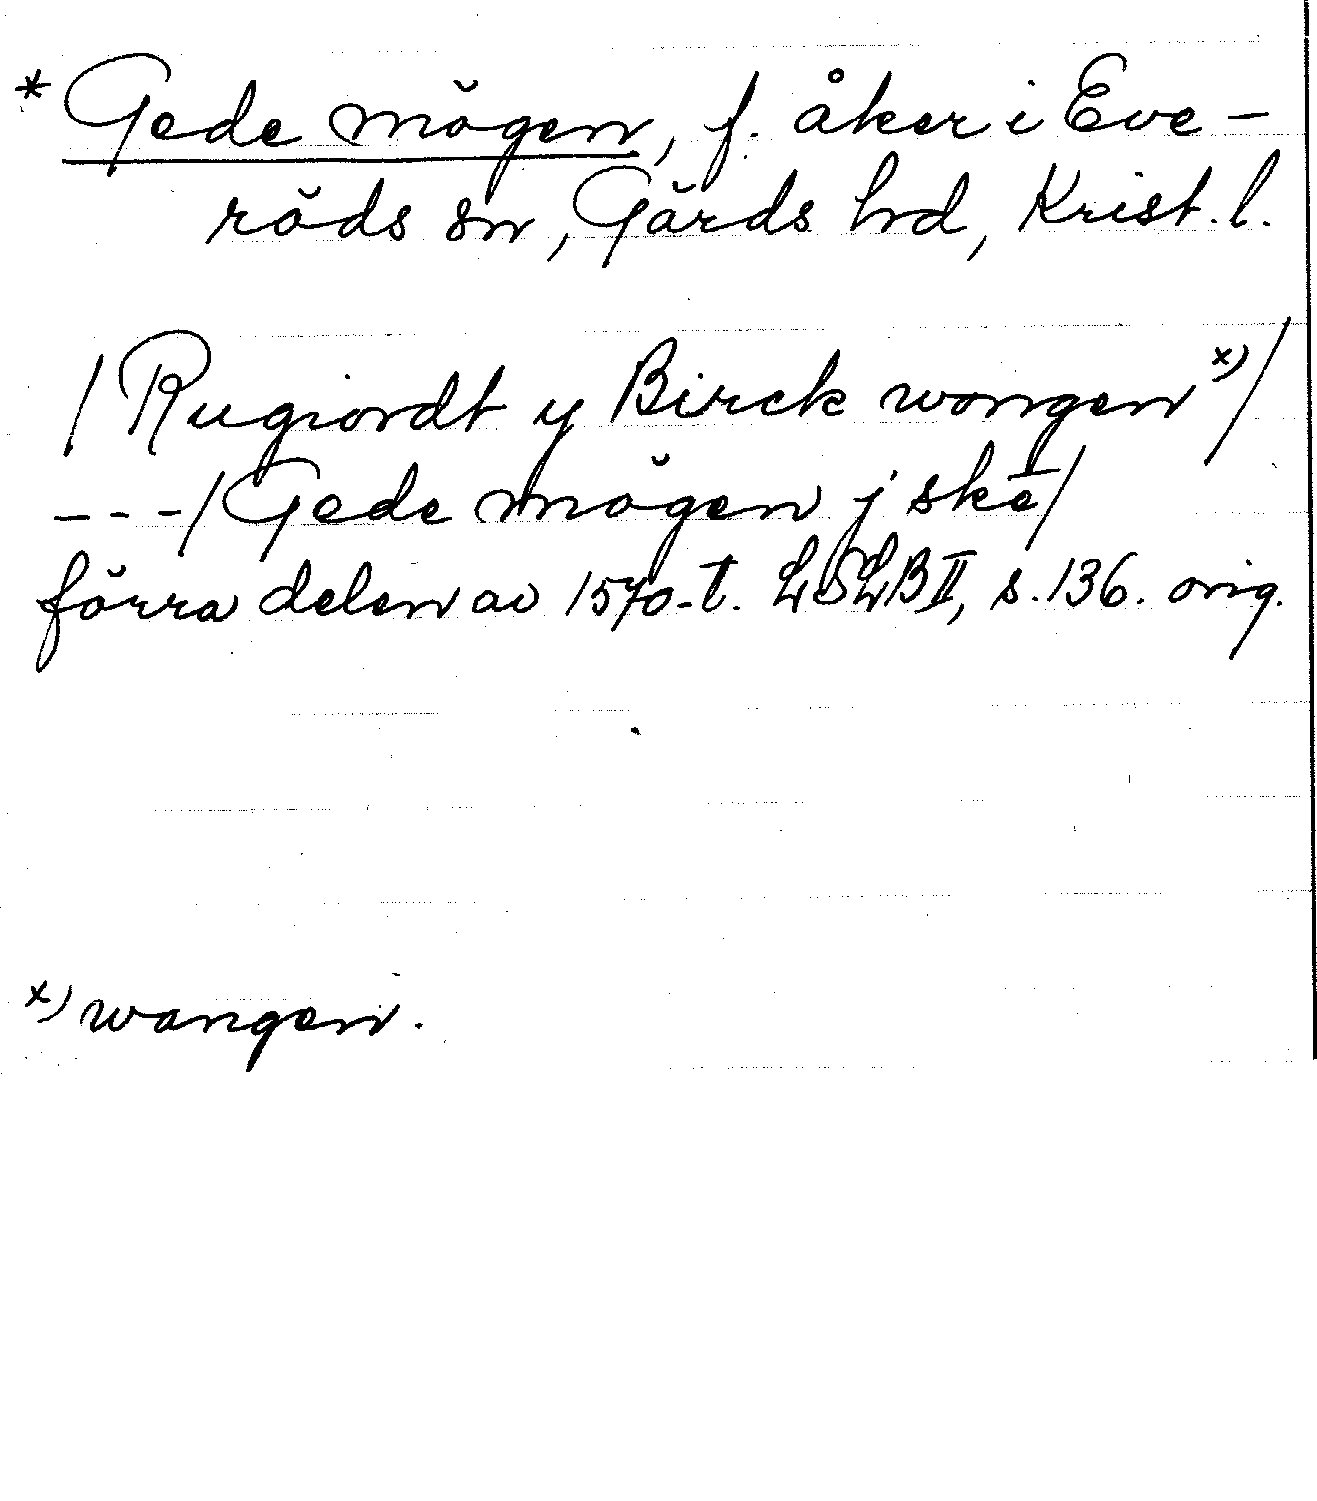 * Gede mögen, f. åker i Eve-
röds sn, Gärds hd, Krist. l.
/ Rugiordt y Birck wongen x) /
--- / Gede mögen j skē /
förra delen av 1570-t. LSLB II, s. 136. orig.
x) wangen.